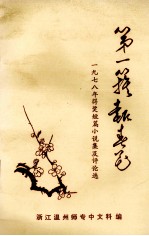 第一簇报春花
一九七八年得奖短篇小说集及评论选
浙江温州师专中文科编